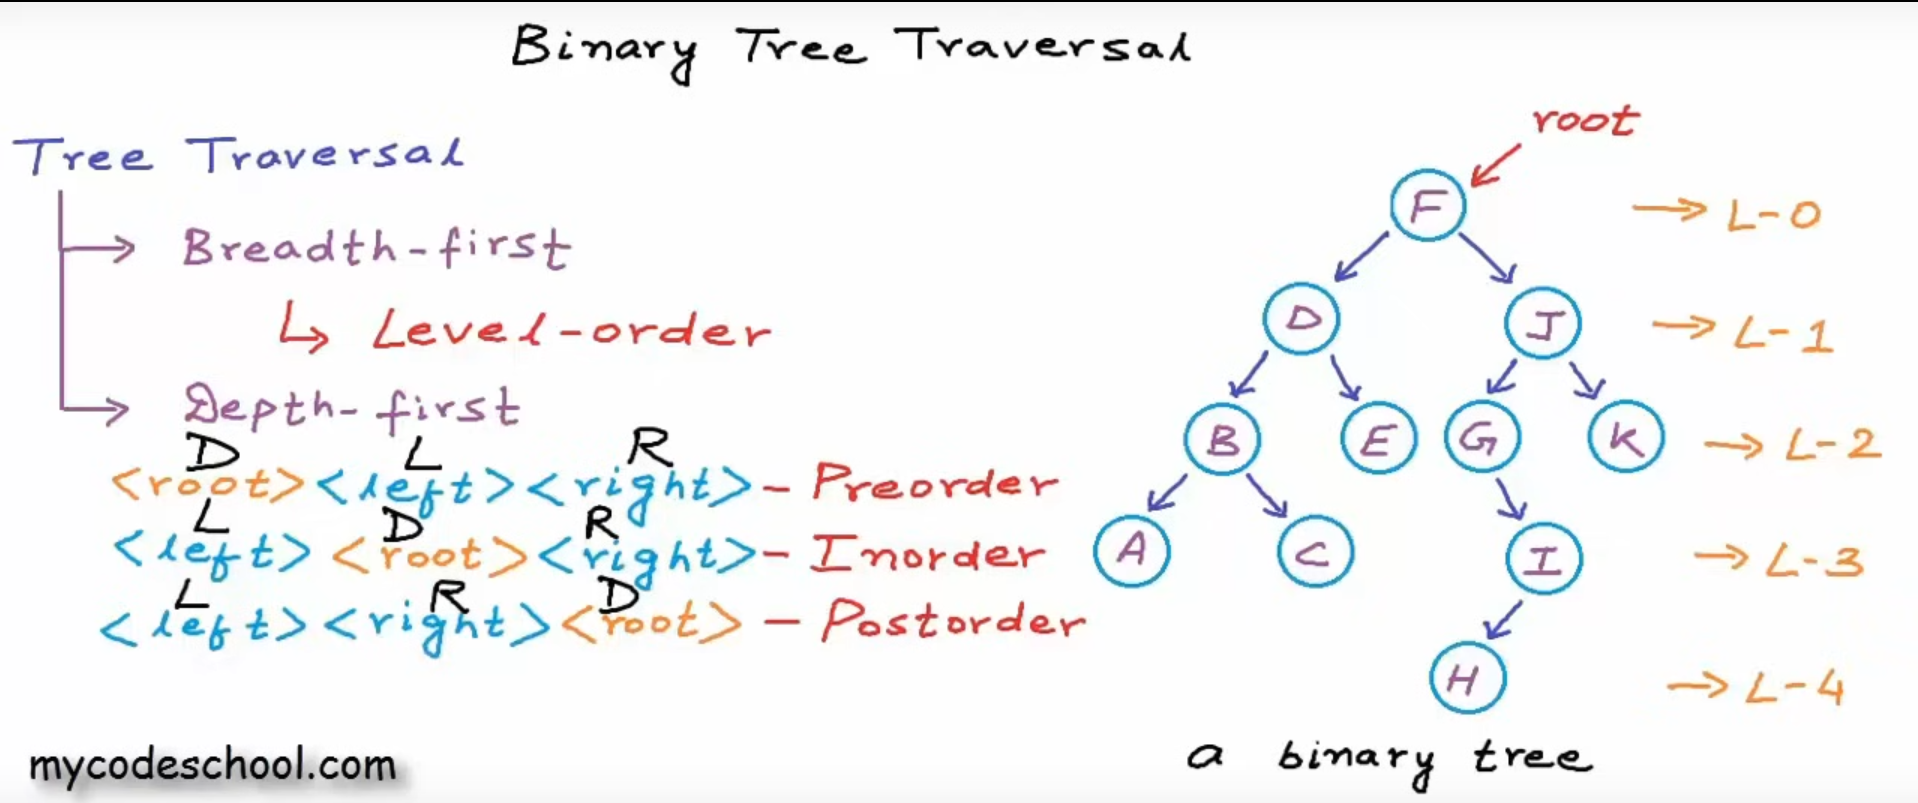 Binary Tree Traversal
Tree Traversal
Breadth-first
Level-order
Depth-first
D L R
<root><left><right> - Preorder
L D R
<left> <root> <right> - Inorder
L R D
<left><right><root> - Postorder
mycodeschool.com
root
F L-0
D J L-1
B E G K L-2
A C I L-3
H L-4
a binary tree